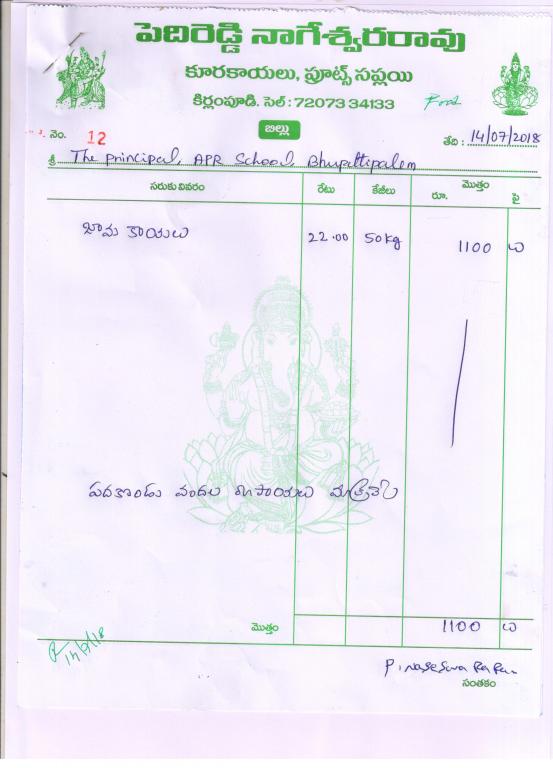 పెదిరెడ్డి నాగేశ్వరరావు
కూరకాయలు, ఫ్రూట్స్ సప్లయి
కిర్లంపూడి. సెల్ : 72073 34133
Food
బిల్లు
నెం. 12
తేది : 14/07/2018
శ్రీ The principal, APR School, Bhupattipalem
సరుకు వివరం రేటు కేజీలు మొత్తం
రూ. పై
జామ కాయలు 22.00 50kg 1100 ω
పదకొండు వందల రూపాయలు మాత్రమే
మొత్తం 1100 ω
14/7/18
P. Nageswara Rao
సంతకం